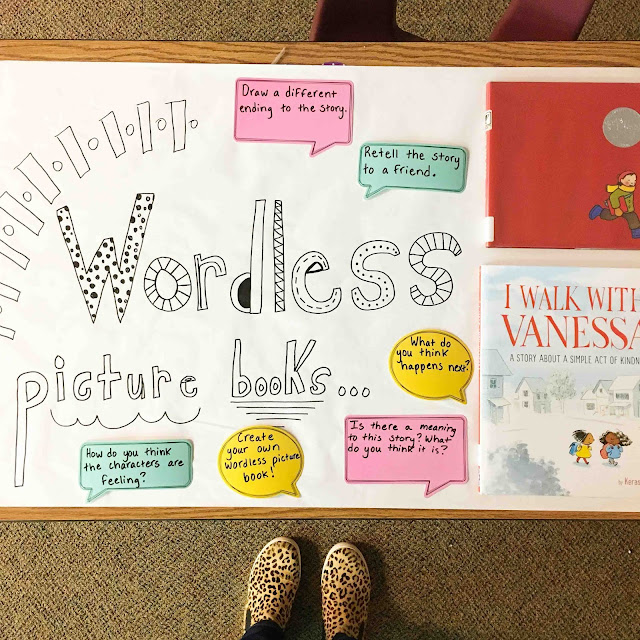 Draw a different
ending to the story.
Retell the story
to a friend.
Wordless
picture books...
What do
you think
happens next?
Is there a meaning
to this story? What
do you think it is?
Create
your own
wordless picture
book!
How do you think
the characters are
feeling?
I WALK WITH
VANESSA
A STORY ABOUT A SIMPLE ACT OF
by